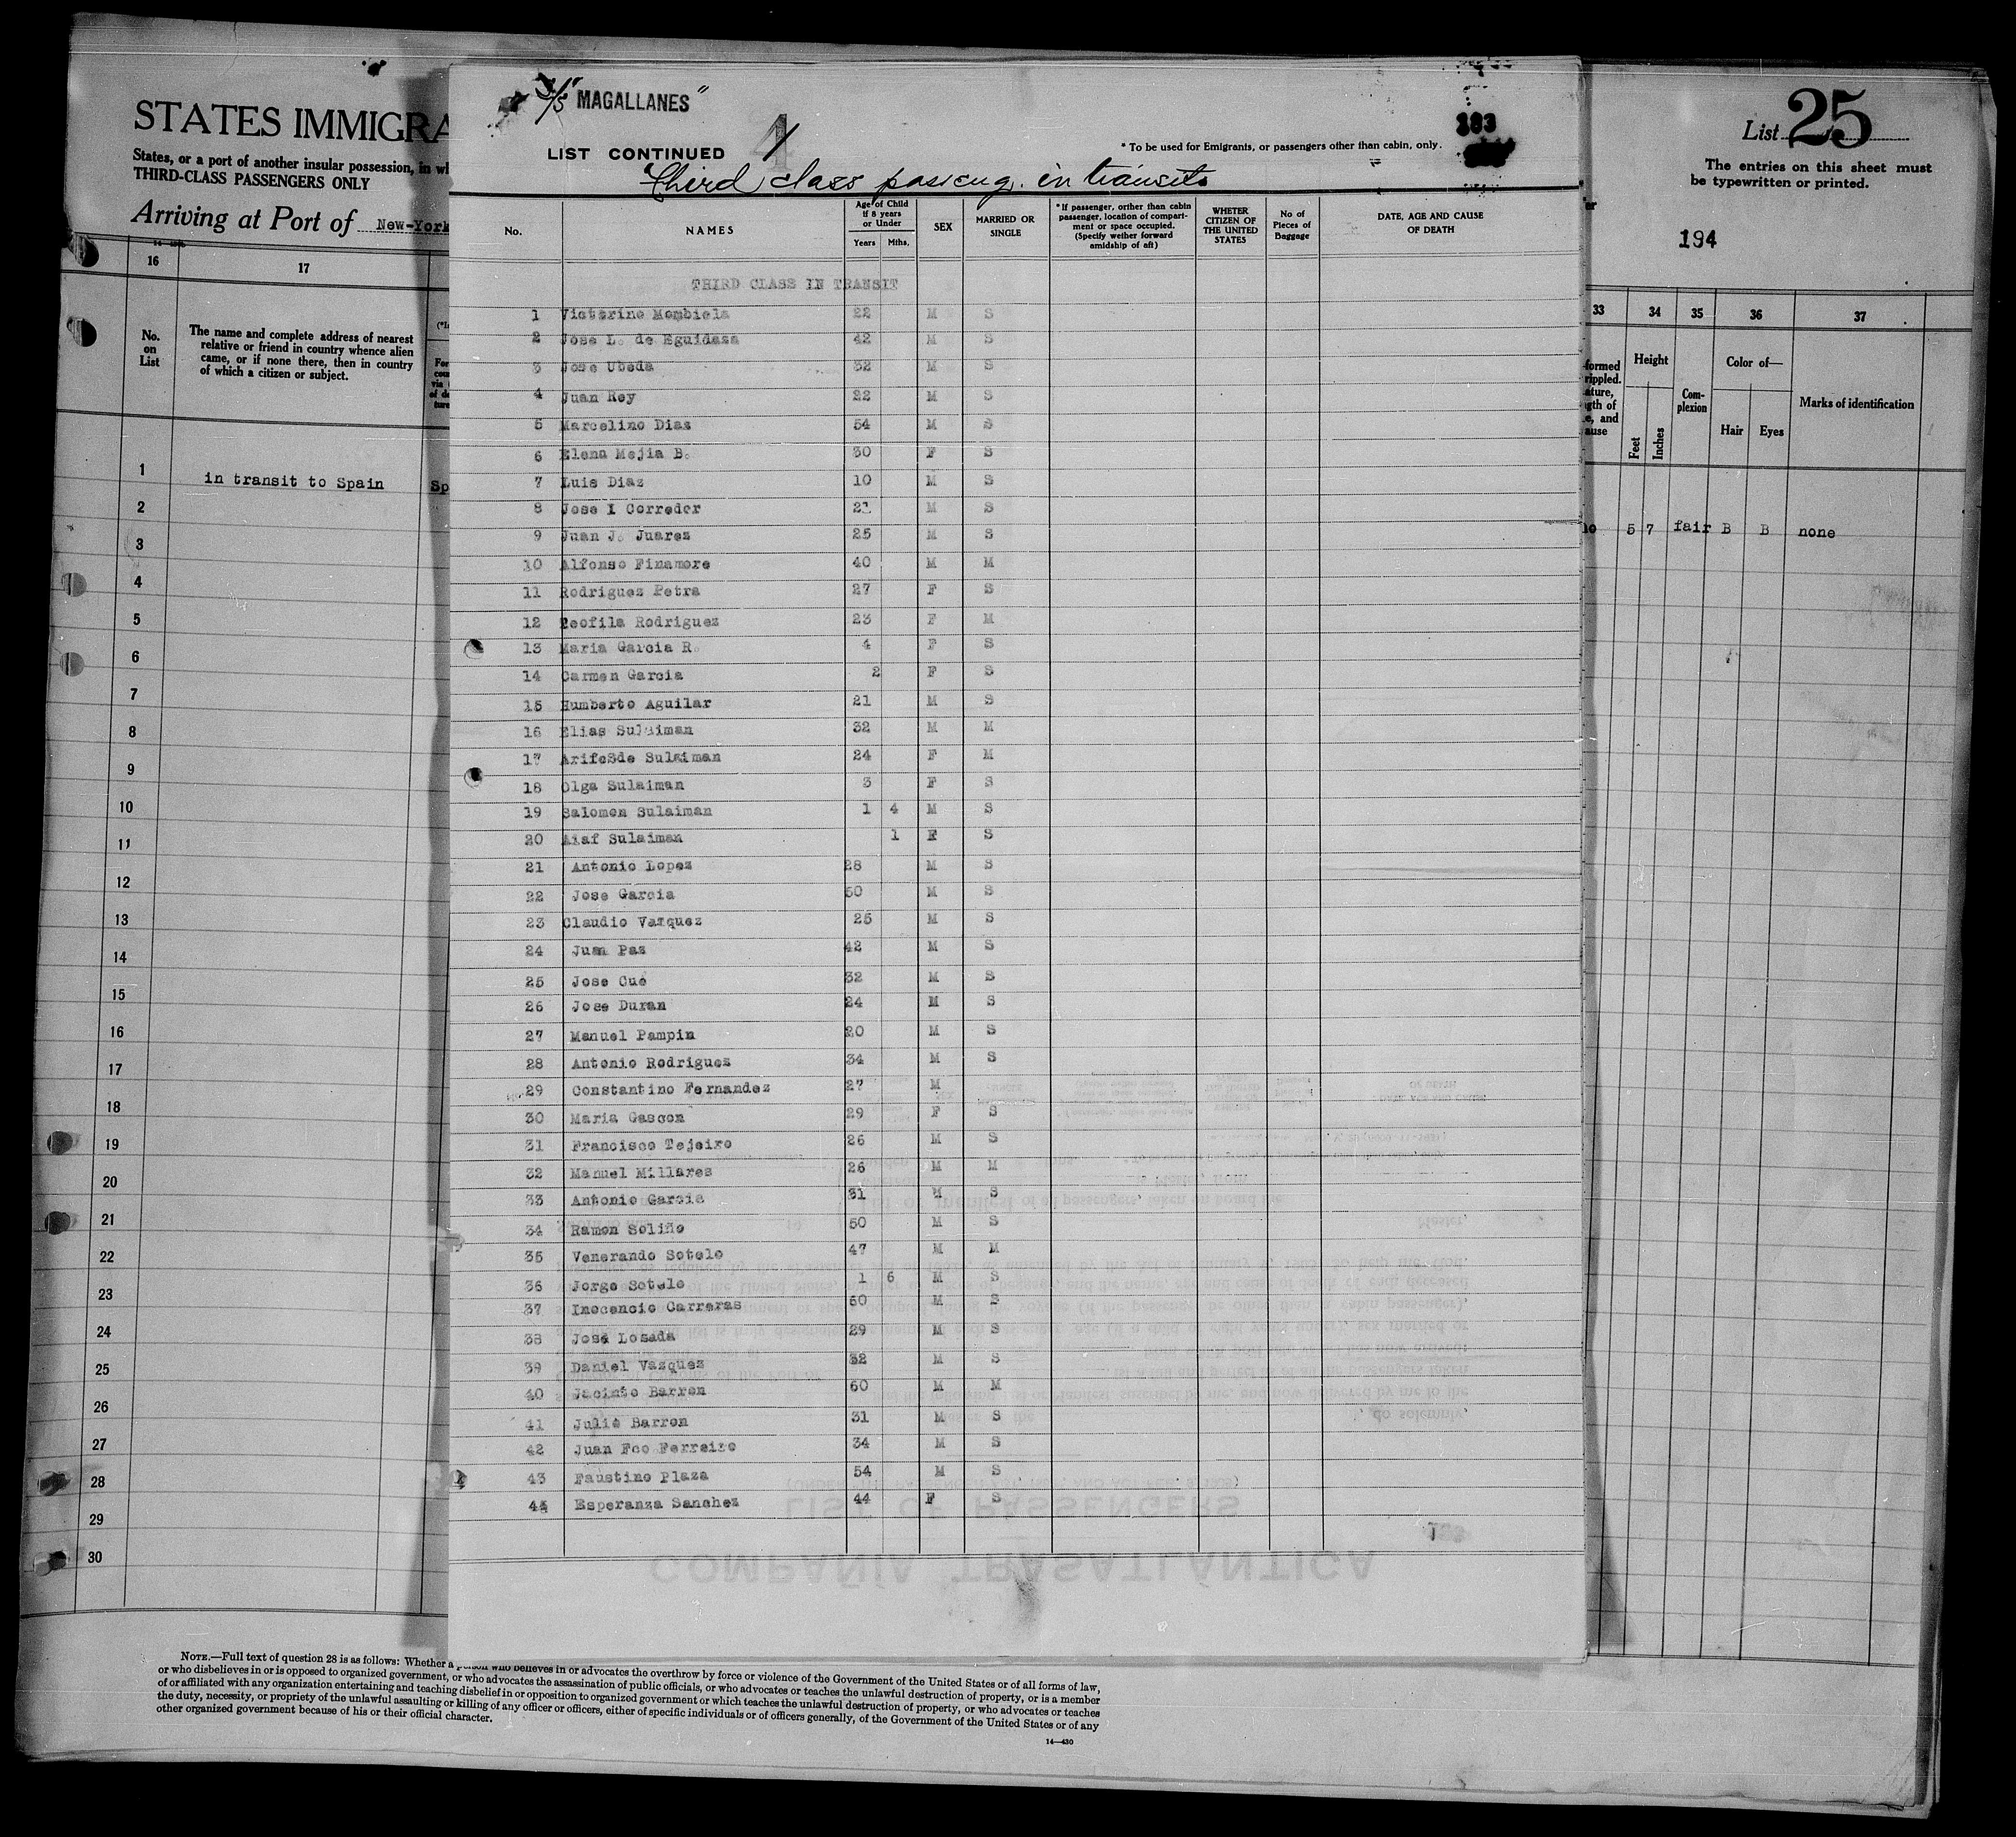 STATES IMMIGRA
States, or a port of another insular possession, in wh
THIRD-CLASS PASSENGERS ONLY
Arriving at Port of New-York
16 17
No. on List
The name and complete address of nearest
relative or friend in country whence alien
came, or if none there, then in country
of which a citizen or subject.
1 in transit to Spain Sp
2
3
4
5
6
7
8
9
10
11
12
13
14
15
16
17
18
19
20
21
22
23
24
25
26
27
28
29
30
S/S "MAGALLANES"
4
183
LIST CONTINUED
* To be used for Emigrants, or passengers other than cabin, only.
Third class passeng. in transit
No.
NAMES
Age of Child
if 8 years
or Under
Years Mths.
SEX
MARRIED OR
SINGLE
* If passenger, orither than cabin
passenger, location of compart-
ment or space occupied.
(Specify wether forward
amidship of aft)
WHETER
CITIZEN OF
THE UNITED
STATES
No of
Pieces of
Baggage
DATE, AGE AND CAUSE
OF DEATH
THIRD CLASS IN TRANSIT
1 Victorino Mombiela 22 M S
2 Jose L. de Eguidaza 42 M S
3 Jose Ubeda 32 M S
4 Juan Rey 22 M S
5 Marcelino Dias 54 M S
6 Elena Mejia B. 30 F S
7 Luis Diaz 10 M S
8 Jose I Corredor 21 M S
9 Juan J. Juarez 25 M S
10 Alfonso Finamore 40 M M
11 Rodriguez Petra 27 F S
12 Teofila Rodriguez 23 F M
13 Maria Garcia R. 4 F S
14 Carmen Garcia 2 F S
15 Humberto Aguilar 21 M S
16 Elias Sulaiman 32 M M
17 ArifeSde Sulaiman 24 F M
18 Olga Sulaiman 3 F S
19 Salomon Sulaiman 1 4 M S
20 Aiaf Sulaiman 1 F S
21 Antonio Lopez 28 M S
22 Jose Garcia 50 M S
23 Claudio Vazquez 25 M S
24 Juan Paz 42 M S
25 Jose Cué 32 M S
26 Jose Duran 24 M S
27 Manuel Pampin 20 M S
28 Antonio Rodriguez 34 M S
29 Constantino Fernandez 27 M
30 Maria Gascon 29 F S
31 Francisco Tejeiro 26 M S
32 Manuel Millares 26 M M
33 Antonio Garcia 31 M S
34 Ramon Soliño 50 M S
35 Venerando Sotelo 47 M M
36 Jorge Sotelo 1 6 M S
37 Inocencio Carreras 50 M S
38 José Losada 29 M S
39 Daniel Vazquez 32 M S
40 Jacinto Barron 60 M M
41 Julio Barron 31 M S
42 Juan Fco Ferreiro 34 M S
43 Faustino Plaza 54 M S
44 Esperanza Sanchez 44 F S
List 25
The entries on this sheet must
be typewritten or printed.
194
33 34 35 36 37
Height
Feet Inches
Com-
plexion
Color of—
Hair Eyes
Marks of identification
no 5 7 fair B B none
NOTE.—Full text of question 28 is as follows: Whether a person who believes in or advocates the overthrow by force or violence of the Government of the United States or of all forms of law,
or who disbelieves in or is opposed to organized government, or who advocates the assassination of public officials, or who advocates or teaches the unlawful destruction of property, or is a member
of or affiliated with any organization entertaining and teaching disbelief in or opposition to organized government or which teaches the unlawful destruction of property, or who advocates or teaches
the duty, necessity, or propriety of the unlawful assaulting or killing of any officer or officers, either of specific individuals or of officers generally, of the Government of the United States or of any
other organized government because of his or their official character.
14—430